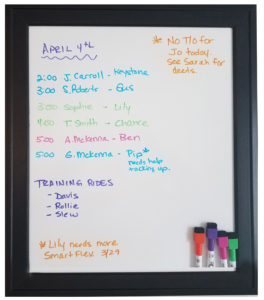 April 4th
* No T/O for
Jo today.
See Sarah for
deets.
2:00 J. Carroll - Keystone
3:00 S. Roberts - Gus
3:00 Sophie - Lily
4:00 T. Smith - Chance
5:00 A. McKenna - Ben
5:00 G. McKenna - Pip*
needs help
tacking up.
TRAINING RIDES
- Davis
- Rollie
- Slew
* Lily needs more
SmartFlex 3/29